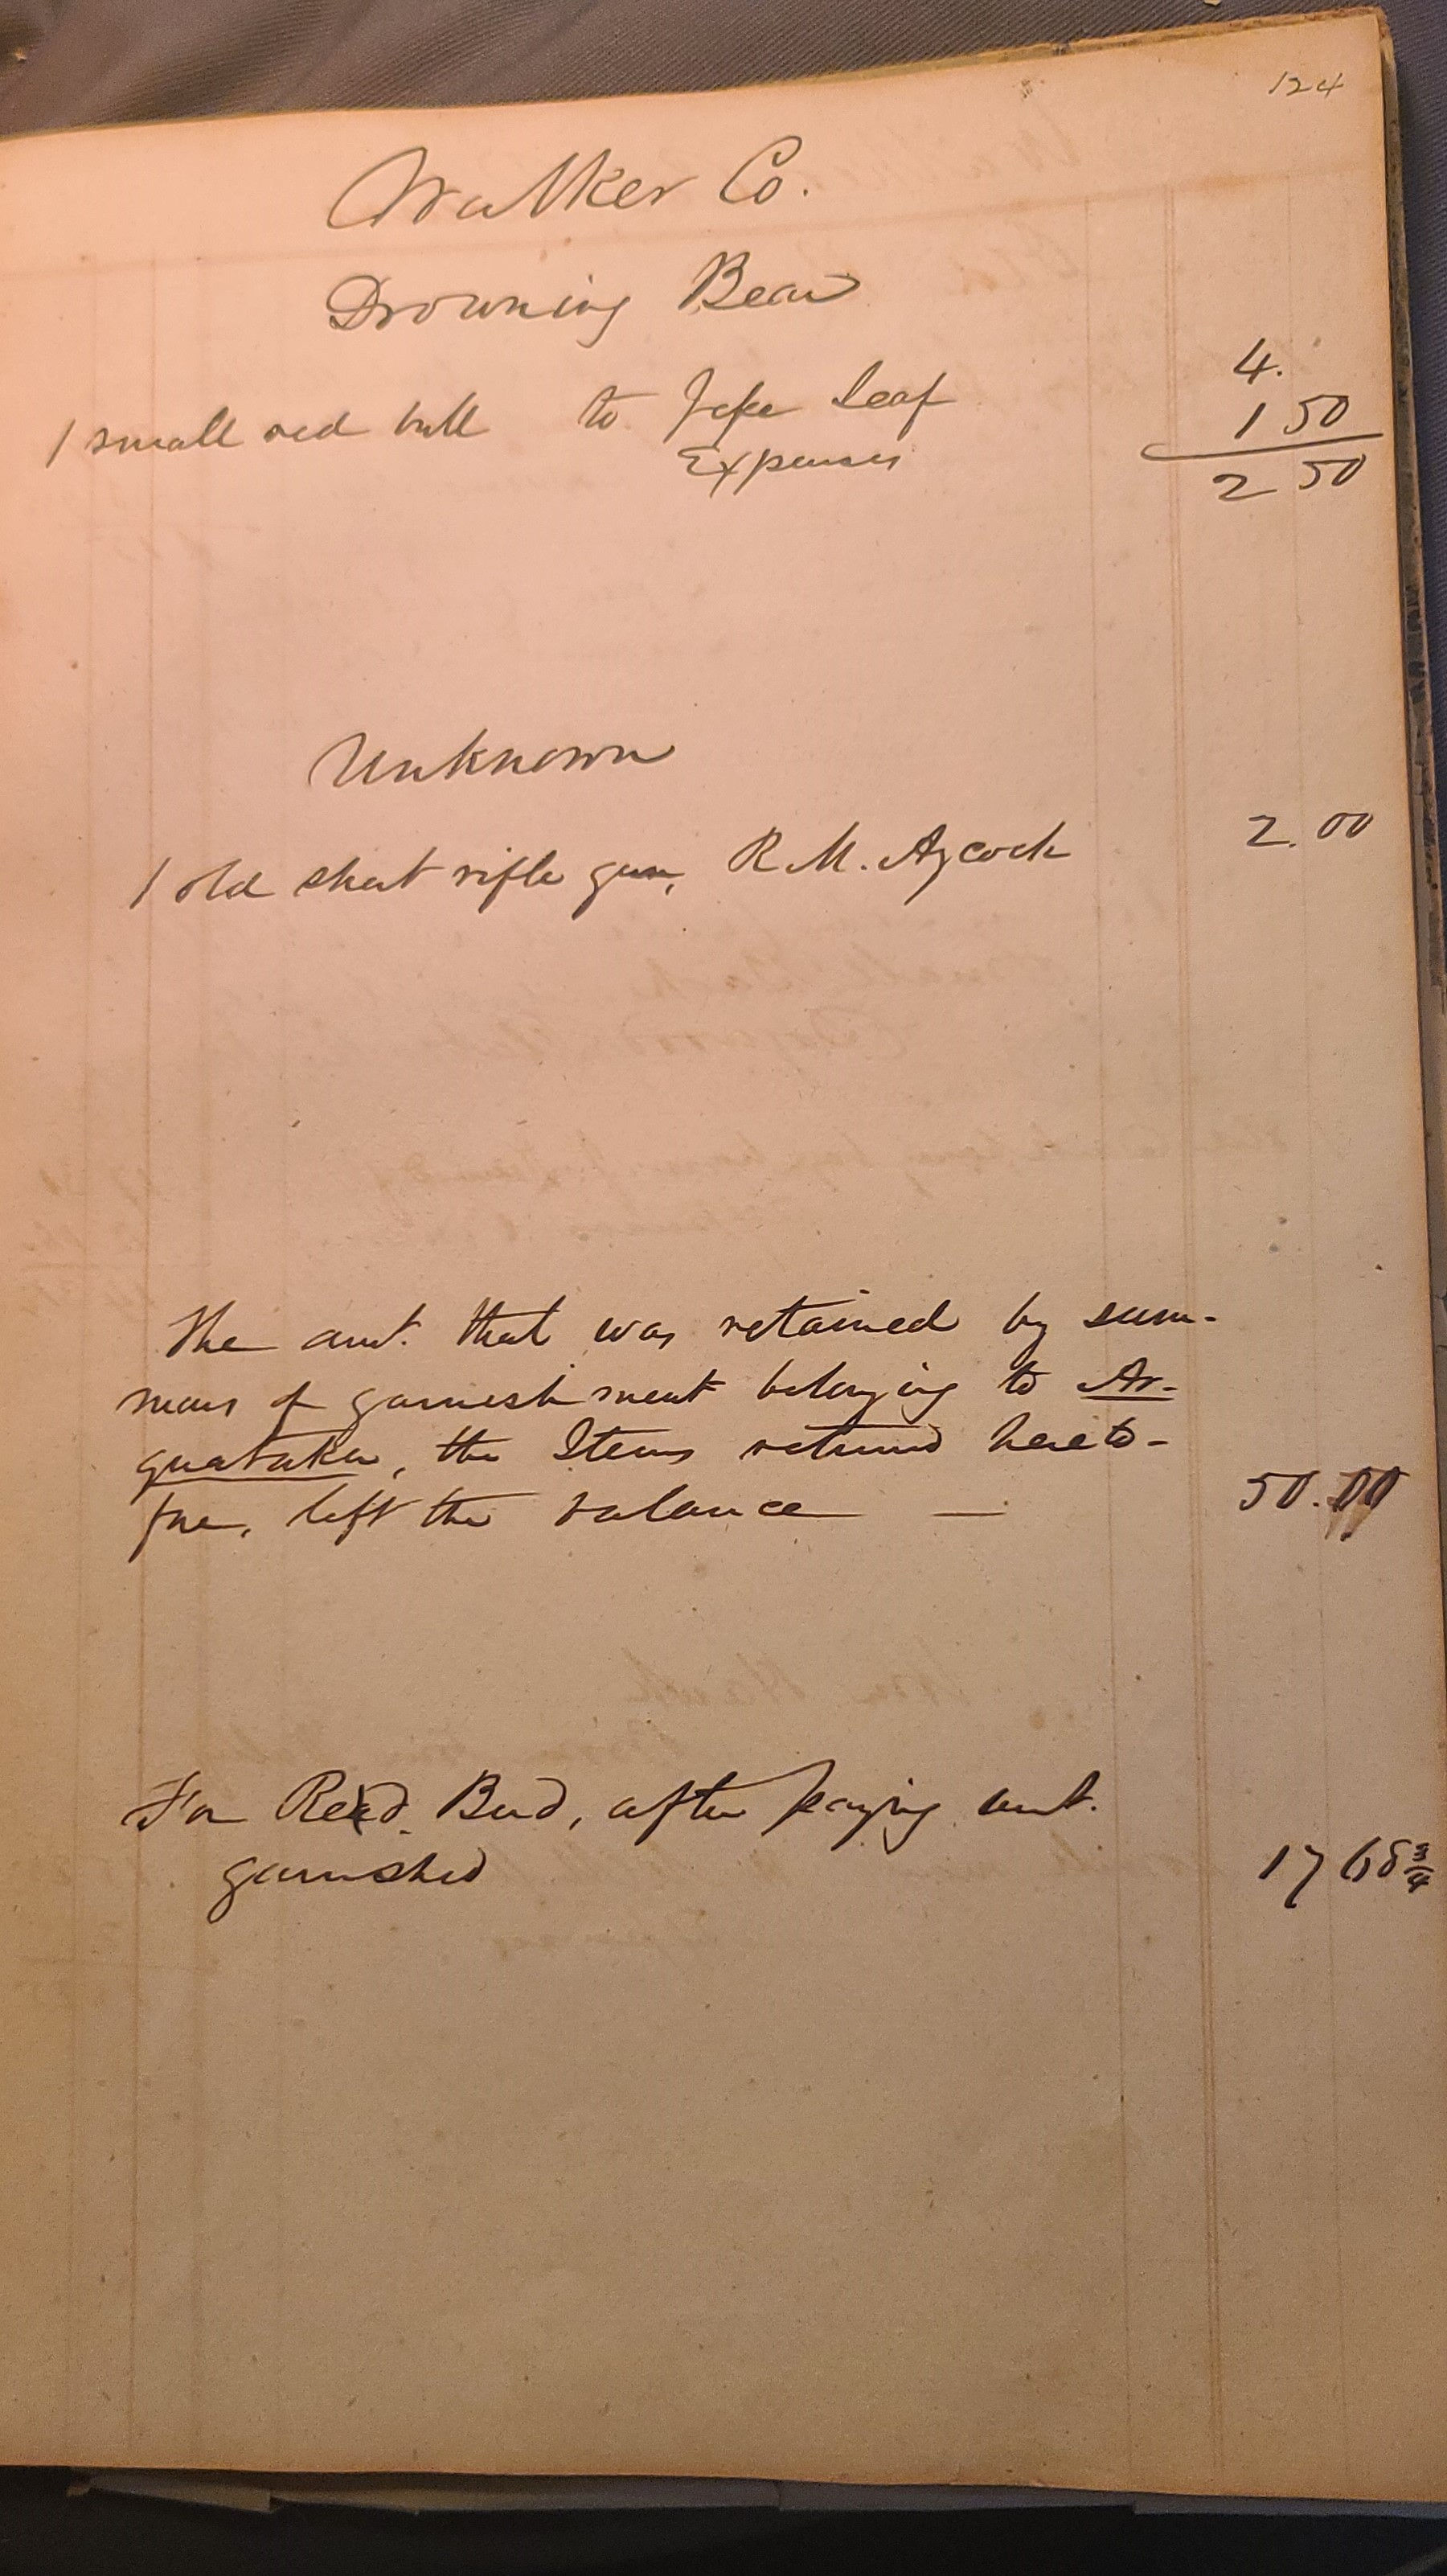 124
Walker Co.
Drowning Bear
4.
1 small red bull to Jesse Leaf
1 50
Expenses
2 50
Unknown
1 old short rifle gun, R. M. Aycock 2.00
The amt. that was retained by sum-
mons of garnishment belonging to Ar-
quataka, the Items returned hereto-
fore, left the balance — 50.00
For Red Bird, after paying amt.
garnished 17 68 3/4